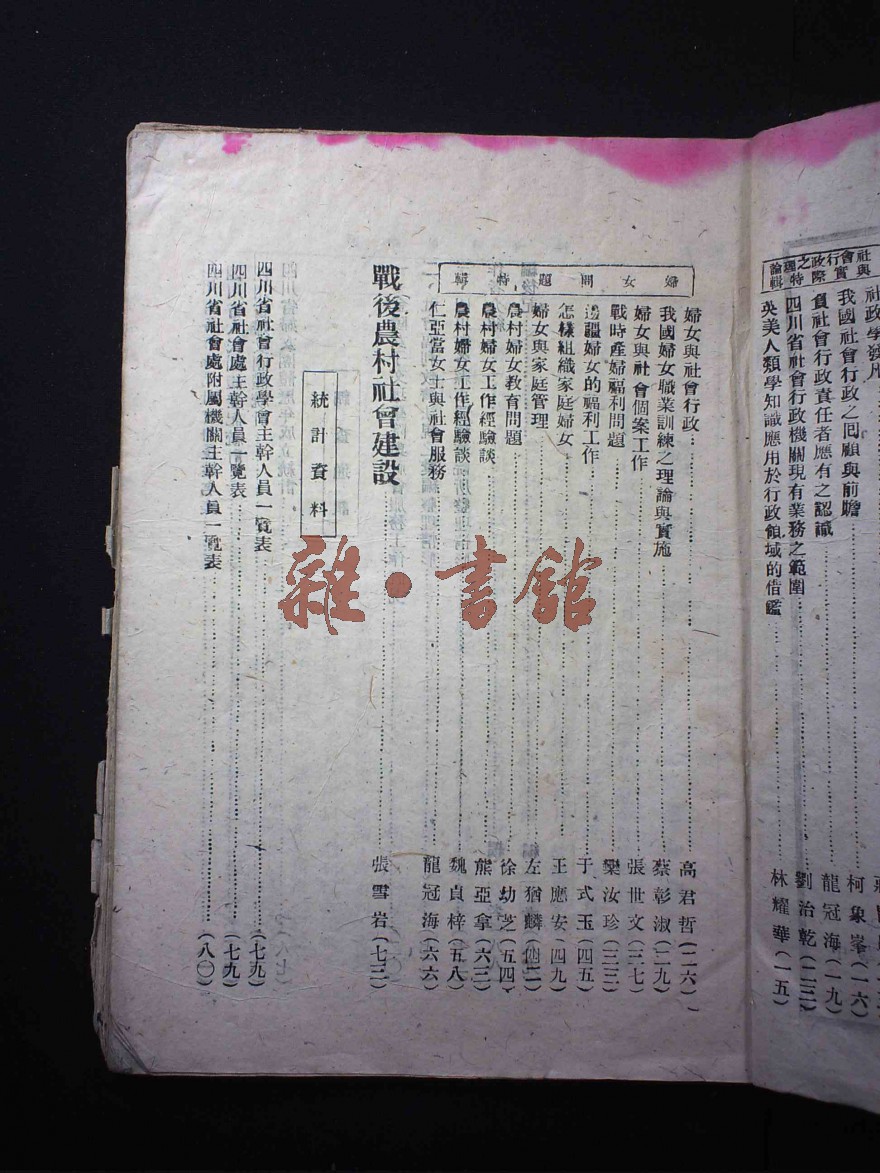 社會行政學發凡
我國社會行政之回顧與前瞻……柯象峯(一六)
負社會行政責任者應有之認識……龍冠海(一九)
四川省社會行政機關現有業務之範圍……劉治乾(二三)
英美人類學知識應用於行政領域的借鑑……林耀華(一五)
婦女問題特輯
婦女與社會行政……高君哲(二六)
我國婦女職業訓練之理論與實施……蔡彰淑(二九)
婦女與社會個案工作……張世文(三七)
戰時產婦福利問題……欒汝珍(三三)
邊疆婦女的福利工作……于式玉(四五)
怎樣組織家庭婦女……王應安(四九)
婦女與家庭管理……左猶麟
農村婦女教育問題……徐幼芝(五四)
農村婦女工作經驗談……熊亞拿(六三)
農村婦女工作經驗談……魏貞梓(五八)
仁亞當女士與社會服務……龍冠海(六六)
戰後農村社會建設……張雪岩(七三)
統計資料
四川省社會行政學會主幹人員一覽表……(七九)
四川省社會處主幹人員一覽表……(七九)
四川省社會處附屬機關主幹人員一覽表……(八〇)
雜·書館